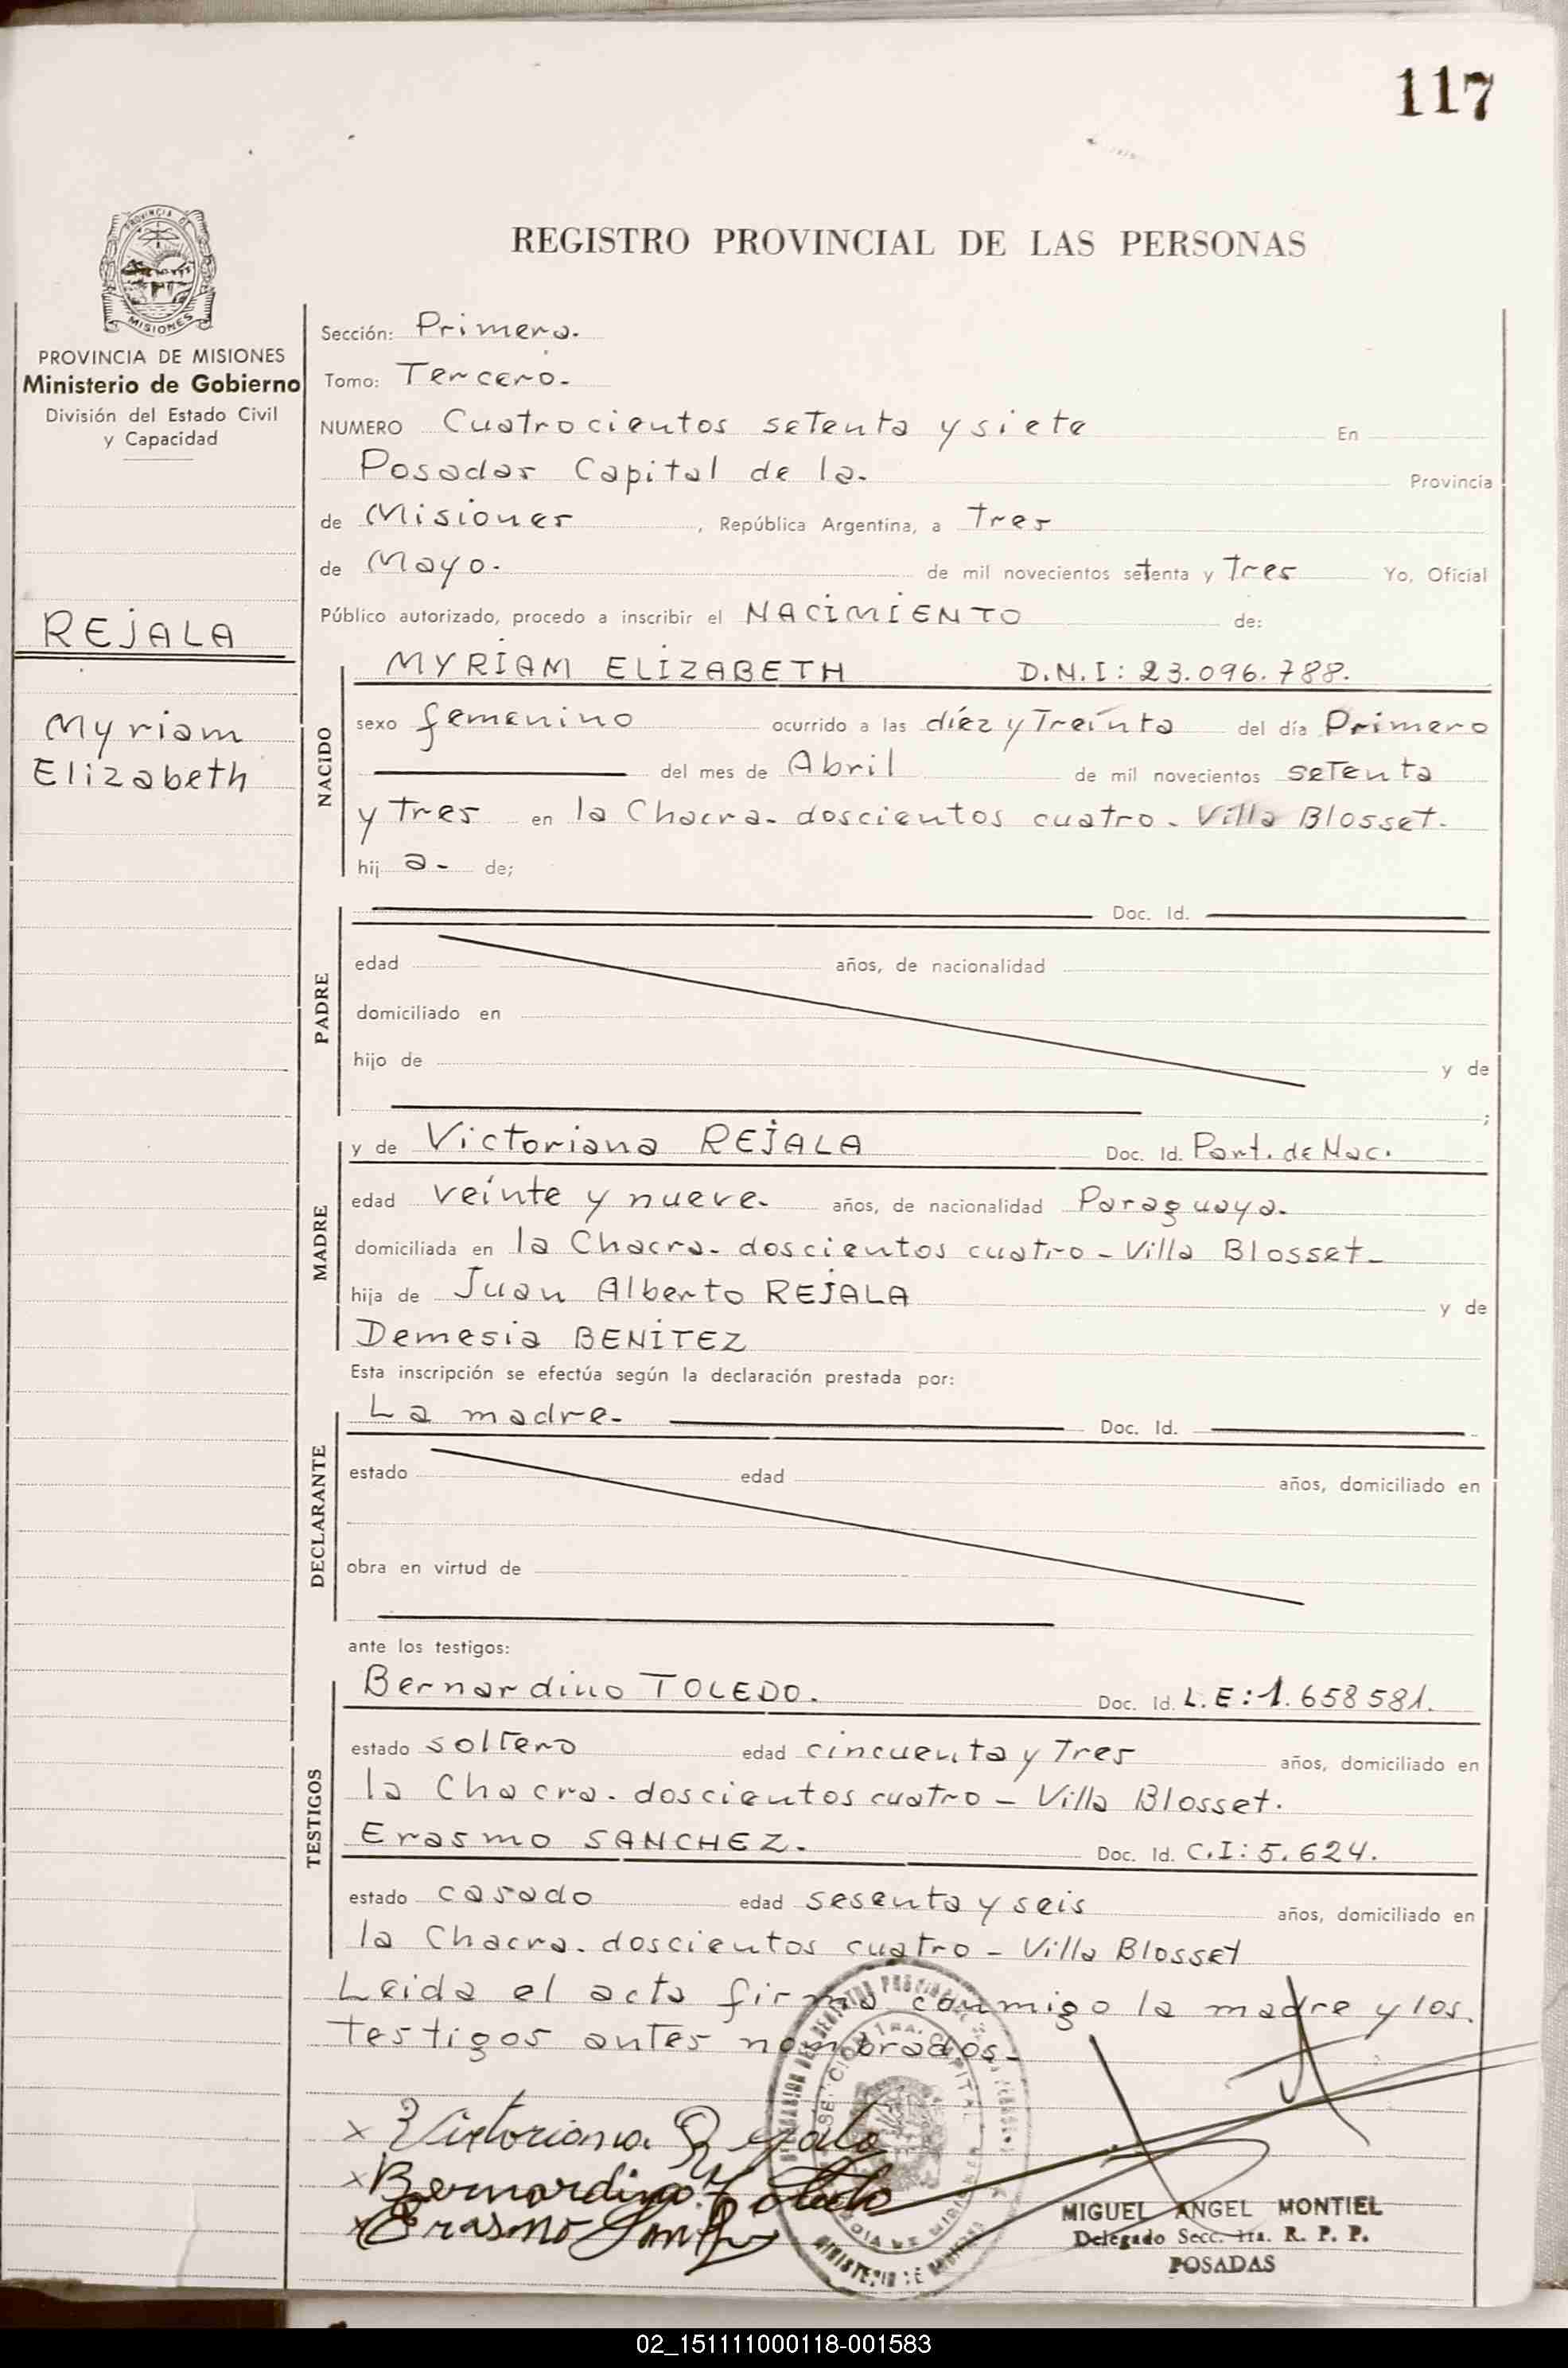 117
PROVINCIA DE
MISIONES
PROVINCIA DE MISIONES
Ministerio de Gobierno
División del Estado Civil
y Capacidad
REJALA
Myriam
Elizabeth
REGISTRO PROVINCIAL DE LAS PERSONAS
Sección: Primera.
Tomo: Tercero.
NUMERO Cuatrocientos setenta y siete En
Posadas Capital de la. Provincia
de Misiones, República Argentina, a Tres
de Mayo. de mil novecientos setenta y Tres Yo, Oficial
Público autorizado, procedo a inscribir el NACIMIENTO de:
NACIDO
MYRIAM ELIZABETH D.N.I: 23.096.788.
sexo femenino ocurrido a las díez y Treínta del día Primero
del mes de Abril de mil novecientos setenta
y Tres en la Chacra. doscientos cuatro - Villa Blosset.
hij a- de;
PADRE
Doc. Id.
edad años, de nacionalidad
domiciliado en
hijo de y de
;
MADRE
y de Victoriana REJALA Doc. Id. Part. de Nac.
edad veinte y nueve. años, de nacionalidad Paraguaya.
domiciliada en la Chacra. doscientos cuatro - Villa Blosset-
hija de Juan Alberto REJALA y de
Demesia BENITEZ
Esta inscripción se efectúa según la declaración prestada por:
DECLARANTE
La madre. Doc. Id.
estado edad años, domiciliado en
obra en virtud de
ante los testigos:
TESTIGOS
Bernardino TOLEDO. Doc. Id. L.E: 1.658581.
estado soltero edad cincuenta y Tres años, domiciliado en
la Chacra. doscientos cuatro - Villa Blosset.
Erasmo SANCHEZ. Doc. Id. C.I: 5.624.
estado casado edad sesenta y seis años, domiciliado en
la Chacra. doscientos cuatro - Villa Blosset
Leida el acta firma conmigo la madre y los
testigos antes nombrados-
x Victoriana Rejala
x Bernardino Toledo
x Erasmo
MIGUEL ANGEL MONTIEL
Delegado Secc. 1ra. R. P. P.
POSADAS
02_151111000118-001583